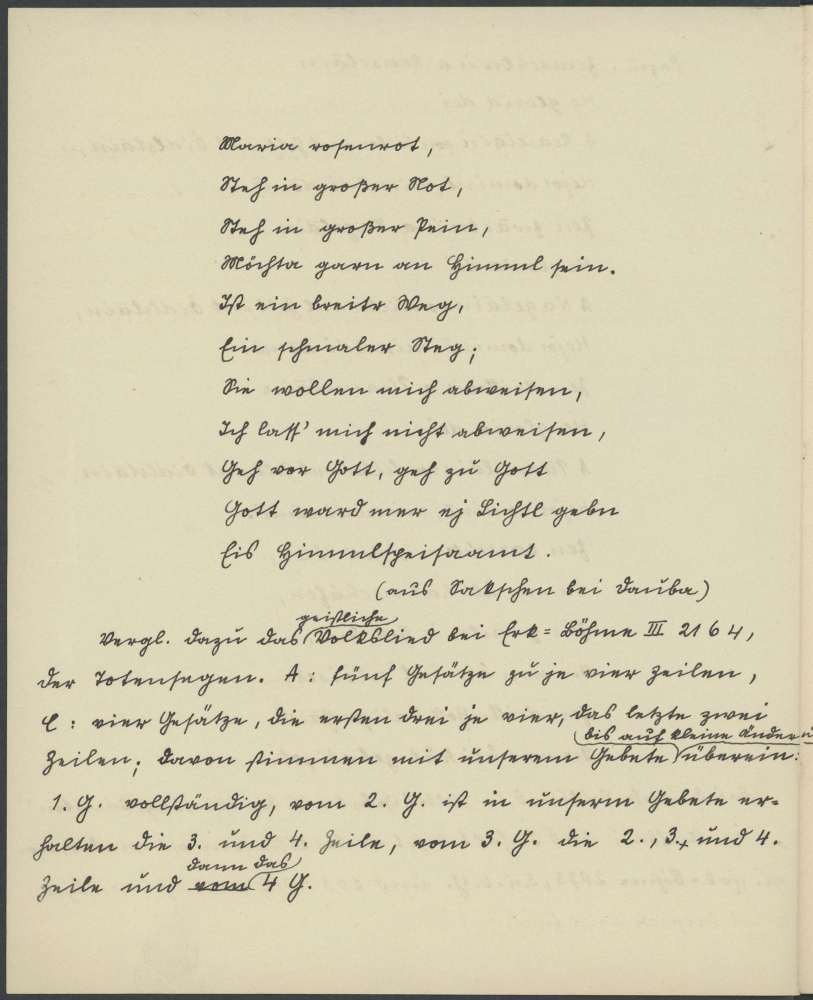 Maria rosenrot,
Steh in großer Not,
Steh in großer Pein,
Möchta garn an Himml sein.
Ist ein breitr Weg,
Ein schmaler Steg;
Sie wollen mich abweisen,
Ich lass' mich nicht abweisen,
Geh vor Gott, geh zu Gott
Gott ward mer ej Lichtl gebn
Eis Himmlspeisaamt.
(aus Sakschen bei Dauba)
geistliche
Vergl. dazu das Volkslied bei Erk=Böhme III 2164,
der Totensegen. A: fünf Gesätze zu je vier Zeilen,
C: vier Gesätze, die ersten drei je vier, das letzte zwei
bis auf kleine Änderu
Zeilen; davon stimmen mit unserem Gebete überein:
1. G. vollständig, vom 2. G. ist in unserm Gebete er-
halten die 3. und 4. Zeile, vom 3. G. die 2., 3., und 4.
dann das
Zeile und vom 4 G.